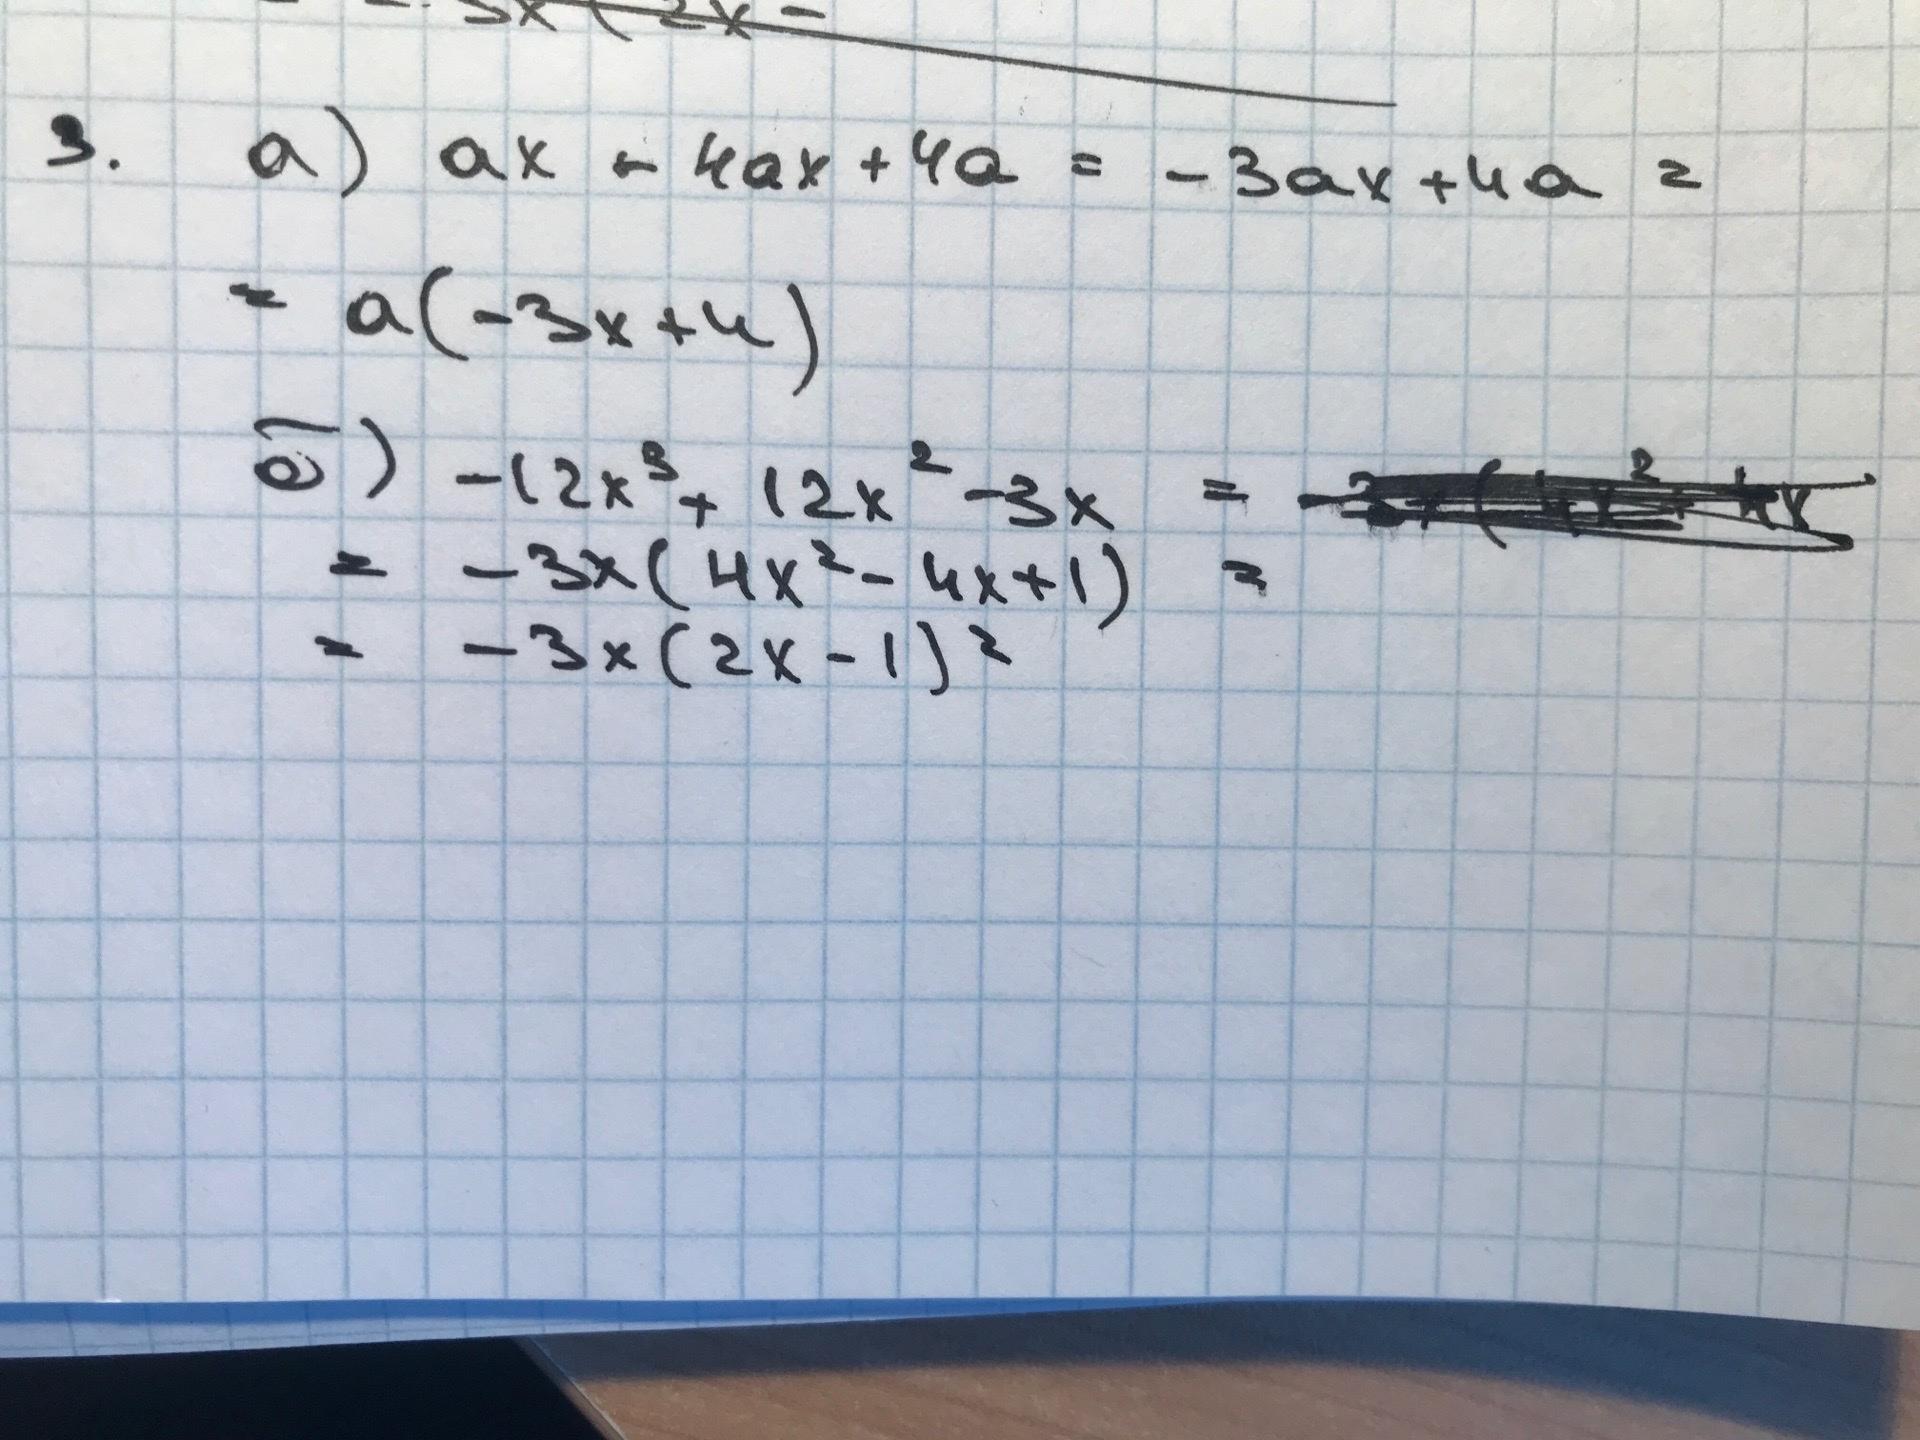 3x(2x-
3. а) ax - 4ax + 4a = -3ax + 4a =
= a(-3x+4)
б) -12x³ + 12x² - 3x =
= -3x(4x² - 4x + 1) =
= -3x(2x - 1)²